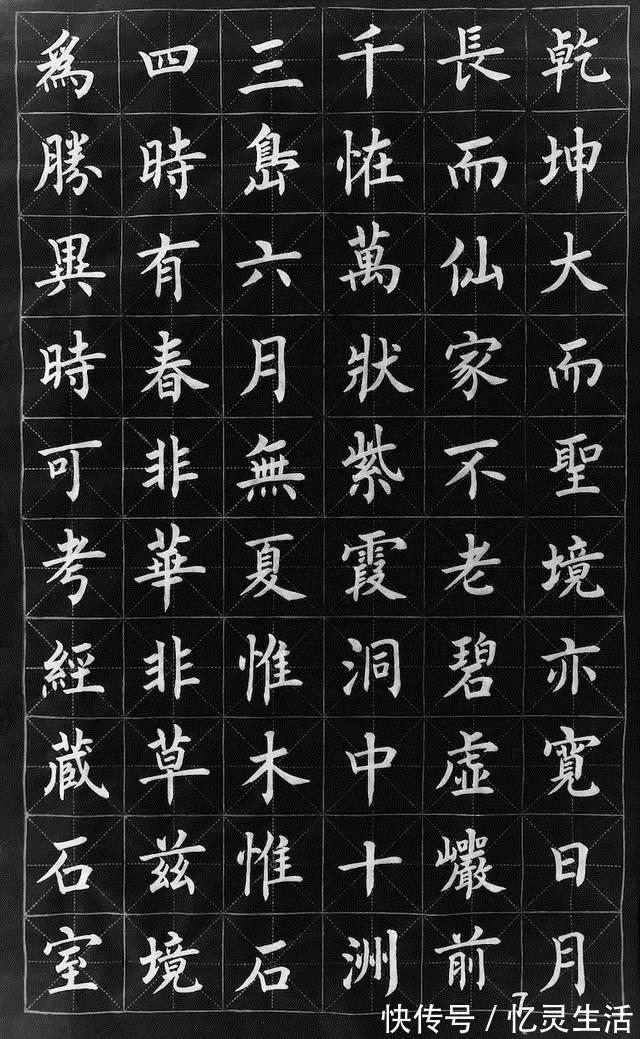 乾坤大而聖境亦寬日月
長而仙家不老碧虛巖前
千怪萬狀紫霞洞中十洲
三島六月無夏惟木惟石
四時有春非華非草茲境
為勝異時可考經蔵石室
快传号 / 忆灵生活